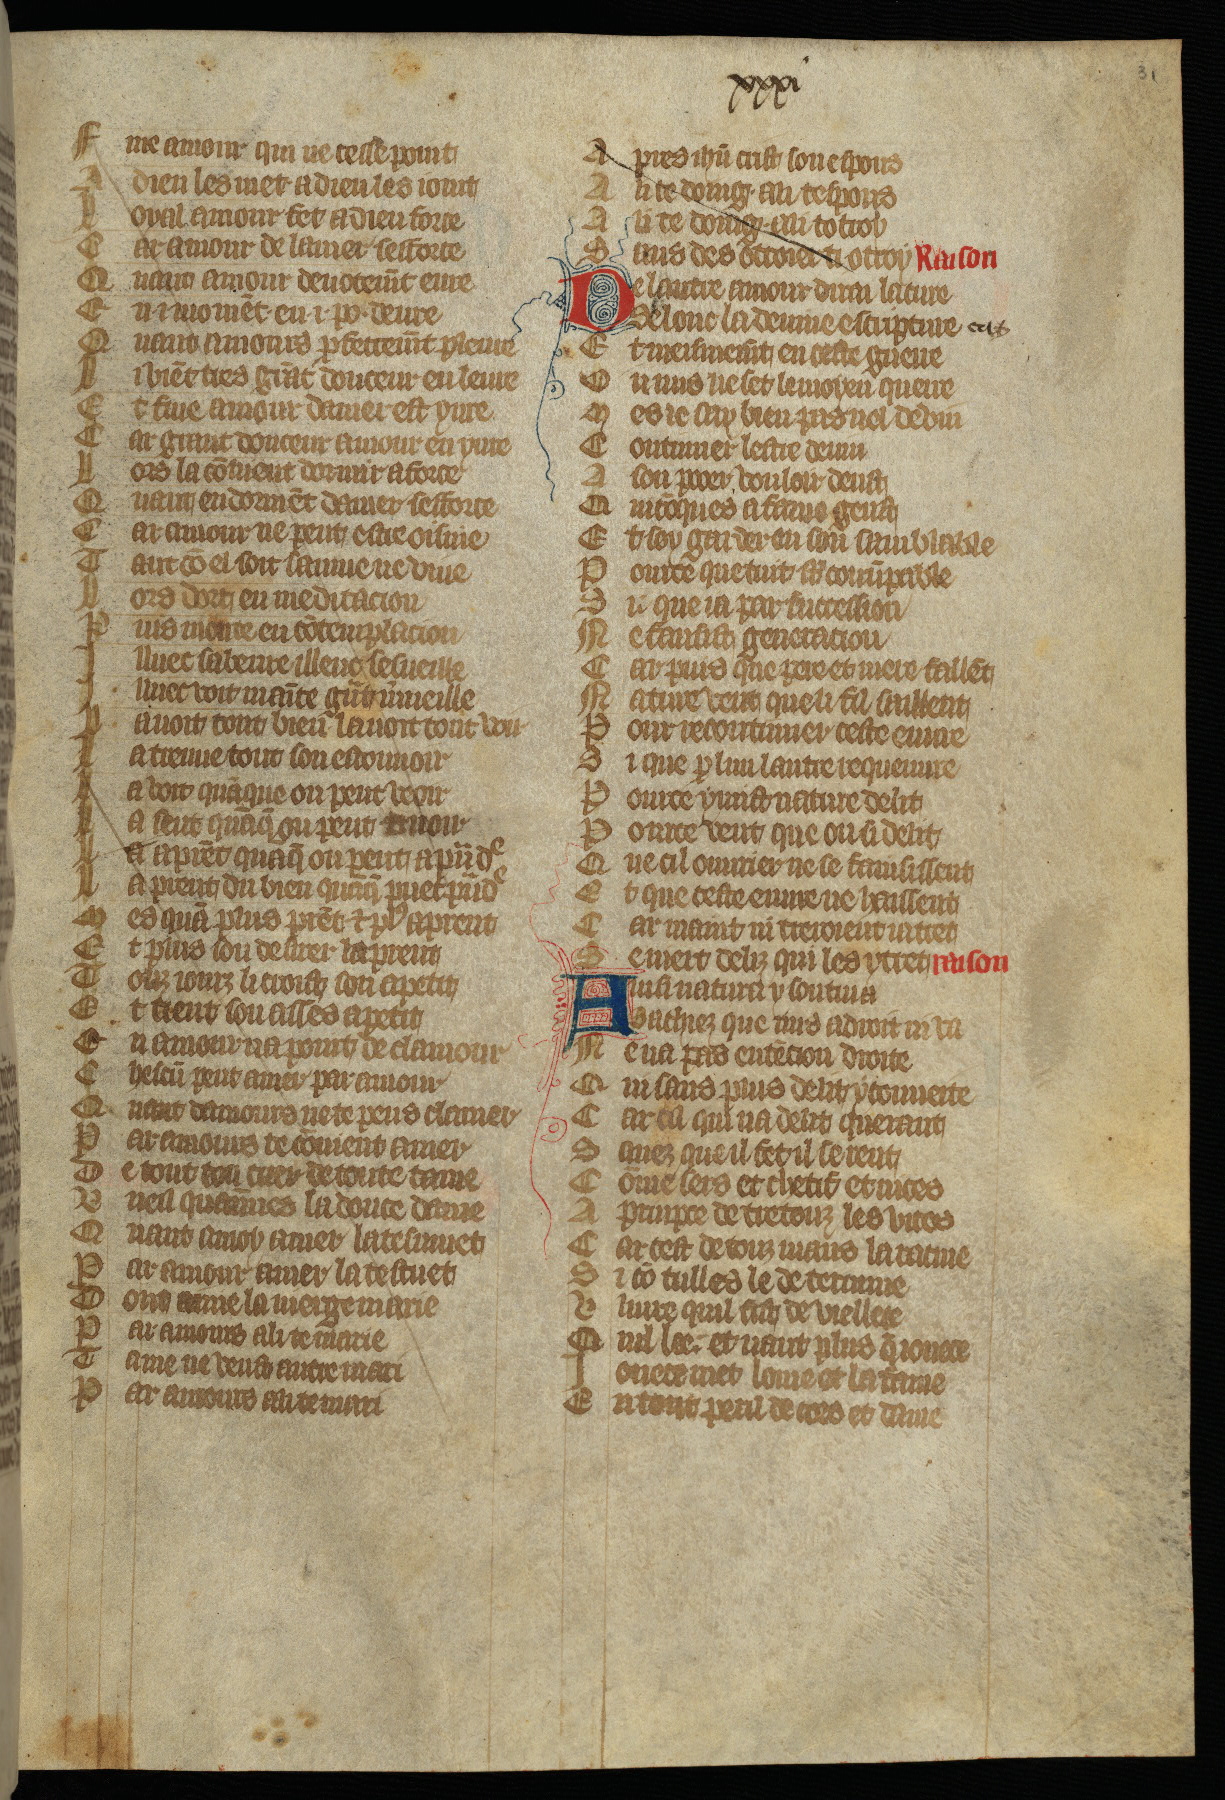 xxxi
31
F ine amour qui ne cesse point
A dieu les met a dieu les ioint
L oyal amour fet a dieu force
C ar amour de lamer sefforce
Q uant amour deuotemt̄ eure
E n i momēt en i po deure
Q uant amours ꝑfettemt̄ pleure
L i viēt tres grāt douceur en leure
E t fine amour damer est yure
C ar grant douceur amour en yure
L ors la cōuient dormir a force
Q uant en dormēt damer sefforce
C ar amour ne peut estre oisiue
T ant cō el soit sainne ne viue
L ors dort en meditacion
P uis monte en cōtemplacion
I lluec sabeure illeuc sesueille
I lluec voit mainte grāt mueille
L a uoit tout bien la uoit tout voir
L a treuue tout son estouuoir
L a voit quāque on peut veoir
L a sent quāq̄ on peut
L a aprēt quaq̄ on peut apn̄dᵉ
L a prent du bien quāq̄ puet pn̄dᵉ
M es quā plus prēt ⁊ plꝰ aprent
E t plus son desirer la prent
T ouz iourz li croist son apetit
E t tient son asses a petit
E n amour na point de clamour
C hescū peut amer par amour
Q uant damours ne te peus clamer
P ar amours te cōuient amer
D e tout ton cuer de toute tame
V ueil quaimes la douce dame
Q uant amoy amer la tesmuet
P ar amour amer la testuet
D ont aime la uierge marie
P ar amours a li te marie
T ame ne veust autre mari
P ar amours a li te mari
A pres ihū crist son espous
A li te doing a li tespous
A li te doing a li totroy
S uns des ottroier ti ottroy Raison
D e lautre amour diray la cure
Selonc la deuine escripture
E t meismemt̄ en ceste gueue
O u nus ne set le moyen querre
M es ie say bien pas nel deuin
C ontinuer lestre deuin
A son pooer vouloir deust
Q uicōques a fame geust
E t soy garder en son samblable
P ource que tuit st̄ corrūpable
S i que ia par succession
N e fausist generacion
C ar puis que pere et mere fallēt
N ature veut que li fil saillent
P our recontinuer ceste euure
S i que ꝑ lun lautre requeuure
P ource y mist nature delit
P ource veut que on si delit
Q ue cil ouurier ne se fainsissent
E t que ceste euure ne haissent
C ar maint ni treroient ia tret
S e nert deliz qui les y tret raison
A insi natura y soutiua
Sachiez que nus a droit ni va
N e na pas entēcion droite
Q ui sans plus delit y couuoite
C ar cil qui va delit querant
S auez que il fet il se rent
C ōme sers et chetif et nices
A prinpce de trestouz les vices
C ar cest de touz maus la racine
S i cō tulles le determine
V liure quil fist de viellece
Q uil loe et uaut plus q̄ ionece
I onece met lome et la fāme
E n tout peril de cors et dame